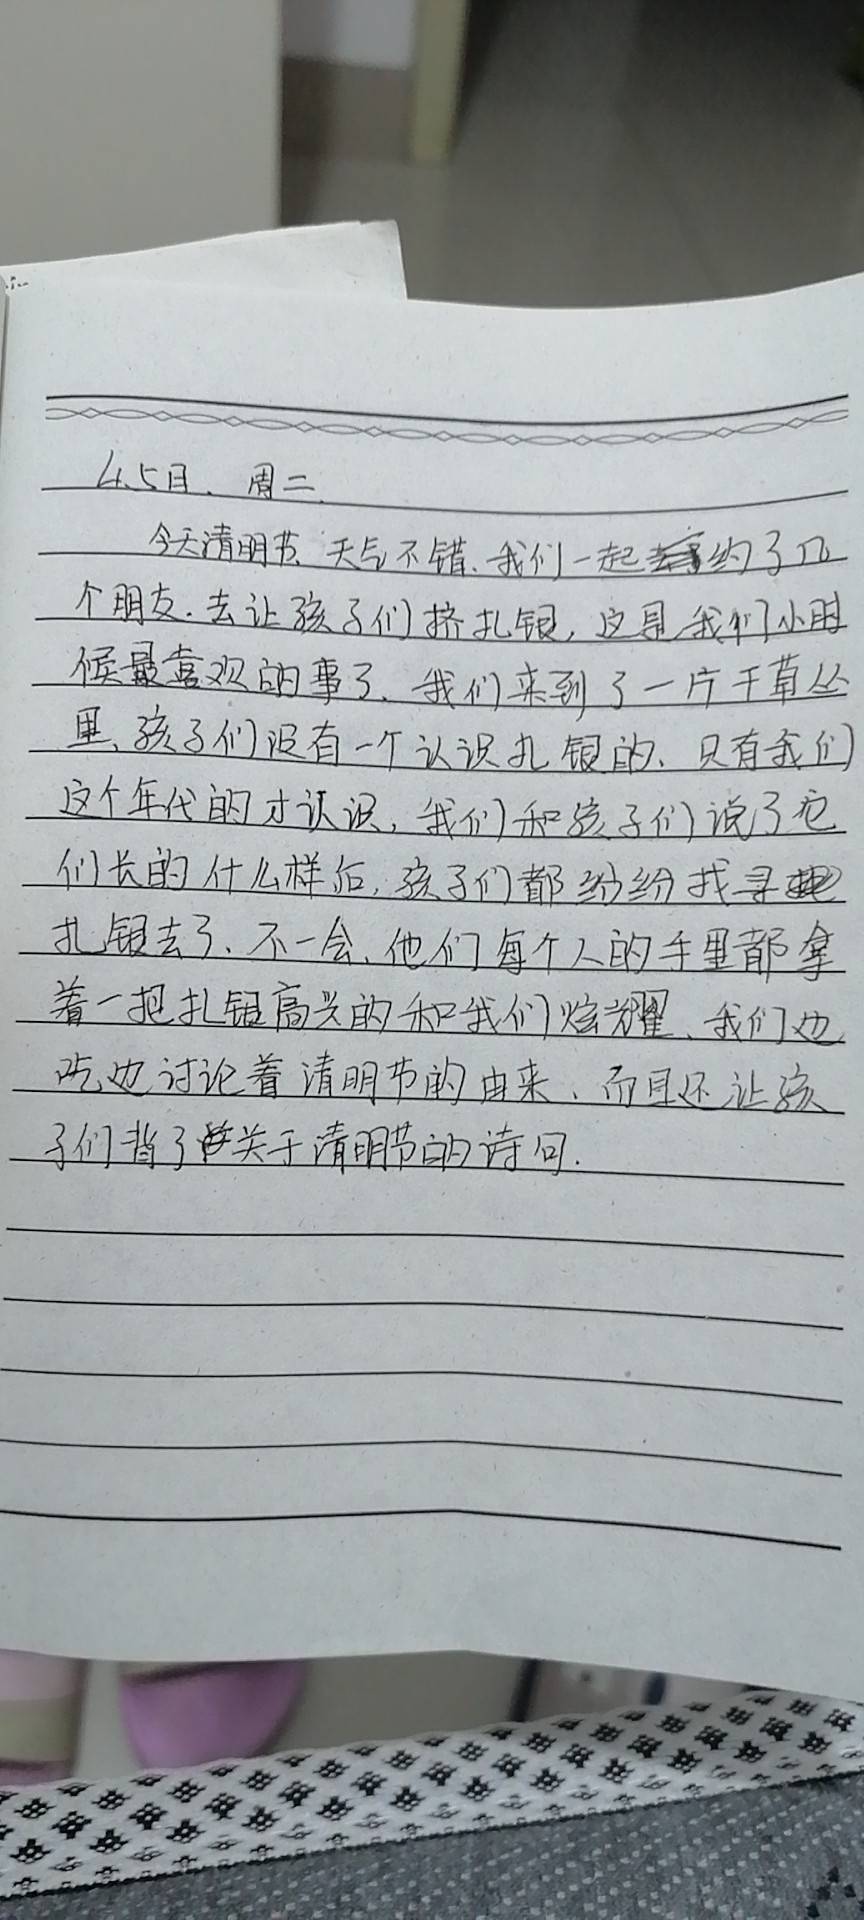 4.5日、周二.
今天清明节、天气不错、我们一起约了几
个朋友.去让孩子们挤扎银,这是我们小时
候最喜欢的事了、我们来到了一片干草丛
里、孩子们没有一个认识扎银的、只有我们
这个年代的才认识,我们和孩子们说了它
们长的什么样后,孩子们都纷纷找寻
扎银去了、不一会、他们每个人的手里都拿
着一把扎银高兴的和我们炫耀、我们也
吃也讨论着清明节的由来、而且还让孩
子们背了关于清明节的诗句.